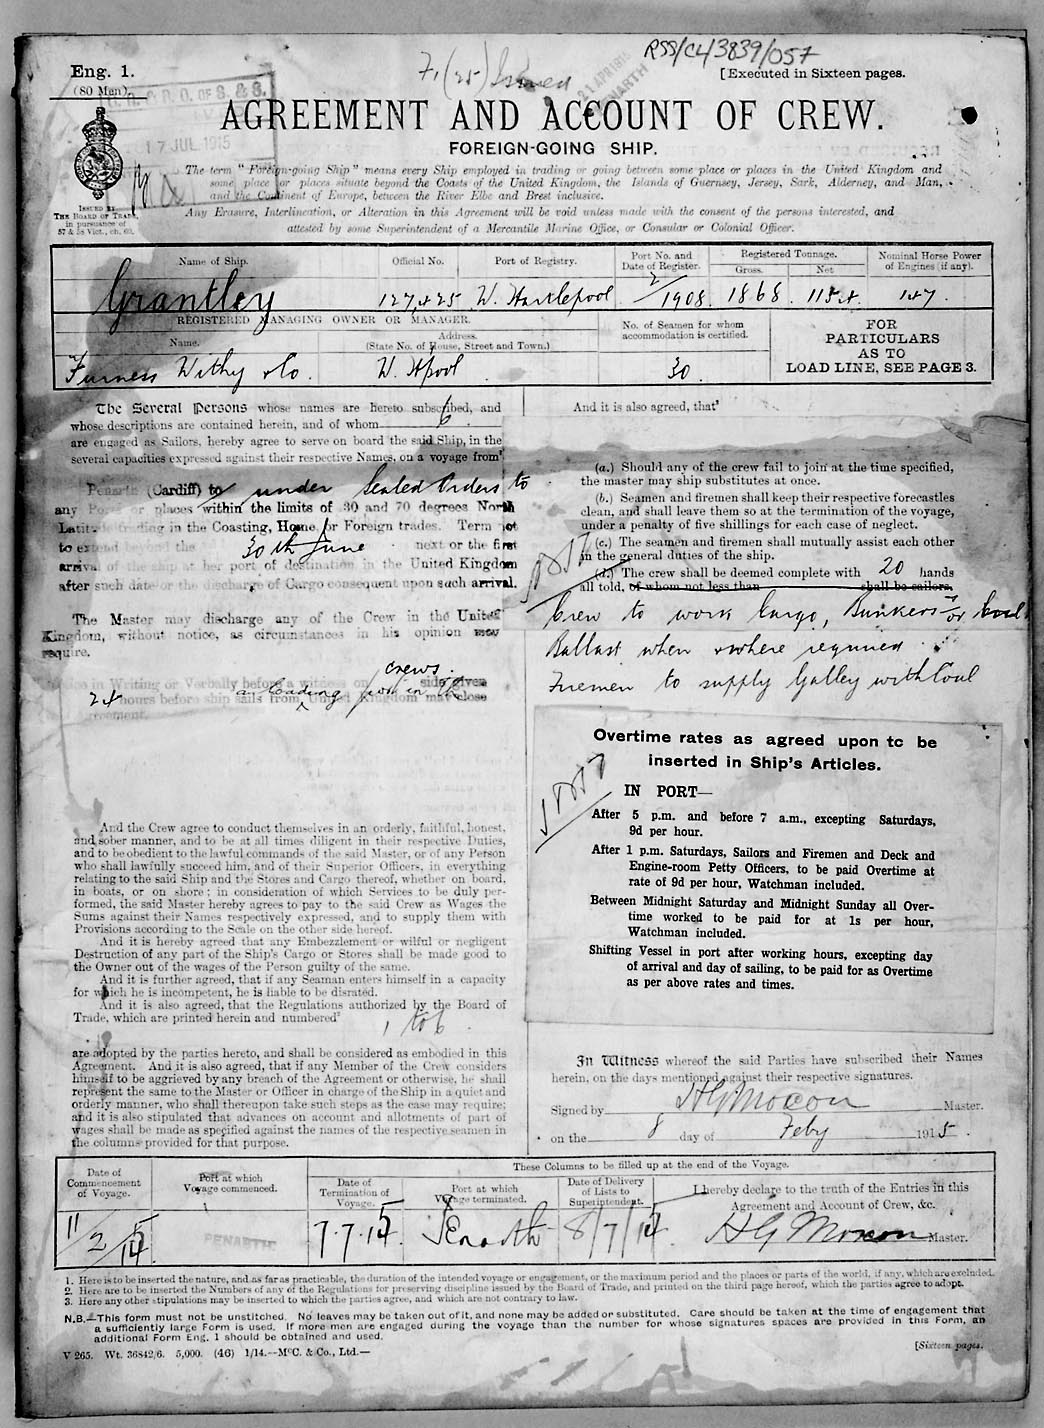 RSS/CL/3839/057
Eng. 1.
(80 Men).
[Executed in Sixteen pages.
17 JUL 1915
21 APR 1915
PENARTH
AGREEMENT AND ACCOUNT OF CREW.
FOREIGN-GOING SHIP.
ISSUED BY
THE BOARD OF TRADE,
in pursuance of
57 & 58 Vict., ch. 60.
The term "Foreign-going Ship" means every Ship employed in trading or going between some place or places in the United Kingdom and
some place or places situate beyond the Coasts of the United Kingdom, the Islands of Guernsey, Jersey, Sark, Alderney, and Man,
and the Continent of Europe, between the River Elbe and Brest inclusive.
Any Erasure, Interlineation, or Alteration in this Agreement will be void unless made with the consent of the persons interested, and
attested by some Superintendent of a Mercantile Marine Office, or Consular or Colonial Officer.
Name of Ship. Official No. Port of Registry. Port No. and Date of Register. Registered Tonnage. Gross. Net Nominal Horse Power of Engines (if any).
Grantley 127425 W. Hartlepool 2/1908. 1868. 1154. 147.
REGISTERED MANAGING OWNER OR MANAGER.
Name. Address. (State No. of House, Street and Town.) No. of Seamen for whom accommodation is certified.
Furness Withy & Co. W. Hpool 30.
FOR
PARTICULARS
AS TO
LOAD LINE, SEE PAGE 3.
The Several Persons whose names are hereto subscribed, and
whose descriptions are contained herein, and of whom 6
are engaged as Sailors, hereby agree to serve on board the said Ship, in the
several capacities expressed against their respective Names, on a voyage from¹
Penarth (Cardiff) to under Sealed Orders to
any Ports or places within the limits of 30 and 70 degrees North
Latit. trading in the Coasting, Home or Foreign trades. Term not
to extend beyond the 30th June next or the first
arrival of the ship at her port of destination in the United Kingdom
after such date or the discharge of Cargo consequent upon such arrival.
The Master may discharge any of the Crew in the United
Kingdom, without notice, as circumstances in his opinion may
require.
crews.
in Writing or Verbally before a witness on side given
24 hours before ship sails from a loading port in the United Kingdom may close
agreement.
And the Crew agree to conduct themselves in an orderly, faithful, honest,
and sober manner, and to be at all times diligent in their respective Duties,
and to be obedient to the lawful commands of the said Master, or of any Person
who shall lawfully succeed him, and of their Superior Officers, in everything
relating to the said Ship and the Stores and Cargo thereof, whether on board,
in boats, or on shore: in consideration of which Services to be duly per-
formed, the said Master hereby agrees to pay to the said Crew as Wages the
Sums against their Names respectively expressed, and to supply them with
Provisions according to the Scale on the other side hereof.
And it is hereby agreed that any Embezzlement or wilful or negligent
Destruction of any part of the Ship's Cargo or Stores shall be made good to
the Owner out of the wages of the Person guilty of the same.
And it is further agreed, that if any Seaman enters himself in a capacity
for which he is incompetent, he is liable to be disrated.
And it is also agreed, that the Regulations authorized by the Board of
Trade, which are printed herein and numbered²
1 to 6
are adopted by the parties hereto, and shall be considered as embodied in this
Agreement. And it is also agreed, that if any Member of the Crew considers
himself to be aggrieved by any breach of the Agreement or otherwise, he shall
represent the same to the Master or Officer in charge of the Ship in a quiet and
orderly manner, who shall thereupon take such steps as the case may require:
and it is also stipulated that advances on account and allotments of part of
wages shall be made as specified against the names of the respective seamen in
the columns provided for that purpose.
And it is also agreed, that³
(a.) Should any of the crew fail to join at the time specified,
the master may ship substitutes at once.
(b.) Seamen and firemen shall keep their respective forecastles
clean, and shall leave them so at the termination of the voyage,
under a penalty of five shillings for each case of neglect.
(c.) The seamen and firemen shall mutually assist each other
in the general duties of the ship.
(d.) The crew shall be deemed complete with 20 hands
all told, of whom not less than shall be sailors.
Crew to work Cargo, Bunkers &/or Coal
Ballast when & where required
Firemen to supply Galley with Coal
Overtime rates as agreed upon to be
inserted in Ship's Articles.
IN PORT—
After 5 p.m. and before 7 a.m., excepting Saturdays,
9d per hour.
After 1 p.m. Saturdays, Sailors and Firemen and Deck and
Engine-room Petty Officers, to be paid Overtime at
rate of 9d per hour, Watchman included.
Between Midnight Saturday and Midnight Sunday all Over-
time worked to be paid for at 1s per hour,
Watchman included.
Shifting Vessel in port after working hours, excepting day
of arrival and day of sailing, to be paid for as Overtime
as per above rates and times.
In Witness whereof the said Parties have subscribed their Names
herein, on the days mentioned against their respective signatures.
Signed by H G Moxon Master.
on the 8 day of Feby 1915.
These Columns to be filled up at the end of the Voyage.
Date of Commencement of Voyage. Port at which Voyage commenced. Date of Termination of Voyage. Port at which Voyage terminated. Date of Delivery of Lists to Superintendent. I hereby declare to the truth of the Entries in this Agreement and Account of Crew, &c.
11/2/15 PENARTH 7.7.15. Penarth 8/7/15 H G Moxon Master.
1. Here is to be inserted the nature, and as far as practicable, the duration of the intended voyage or engagement, or the maximum period and the places or parts of the world, if any, which are excluded.
2. Here are to be inserted the Numbers of any of the Regulations for preserving discipline issued by the Board of Trade, and printed on the third page hereof, which the parties agree to adopt.
3. Here any other stipulations may be inserted to which the parties agree, and which are not contrary to law.
N.B.—This form must not be unstitched. No leaves may be taken out of it, and none may be added or substituted. Care should be taken at the time of engagement that
a sufficiently large Form is used. If more men are engaged during the voyage than the number for whose signatures spaces are provided in this Form, an
additional Form Eng. 1 should be obtained and used.
V 265. Wt. 36842/6. 5,000. (46) 1/14.—McC. & Co., Ltd.—
[Sixteen pages.